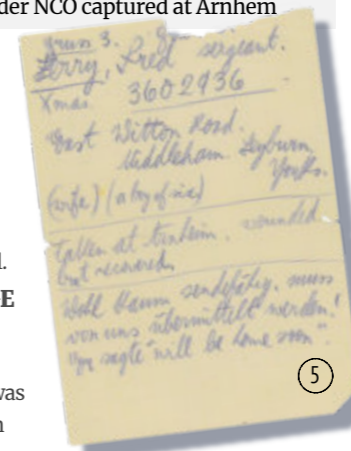 der NCO captured at Arnhem
3.
Terry, Fred sergeant.
Xmas 3602936
East Witton Road.
Middleham Leyburn
Yorks.
(wife) (a boy of six)
Taken at Arnheim. wounded
but recovered.
Wohl kaum sendefähig, muss
von uns übermittelt werden!
"sagte "will be home soon".
l.
E
was
n
5